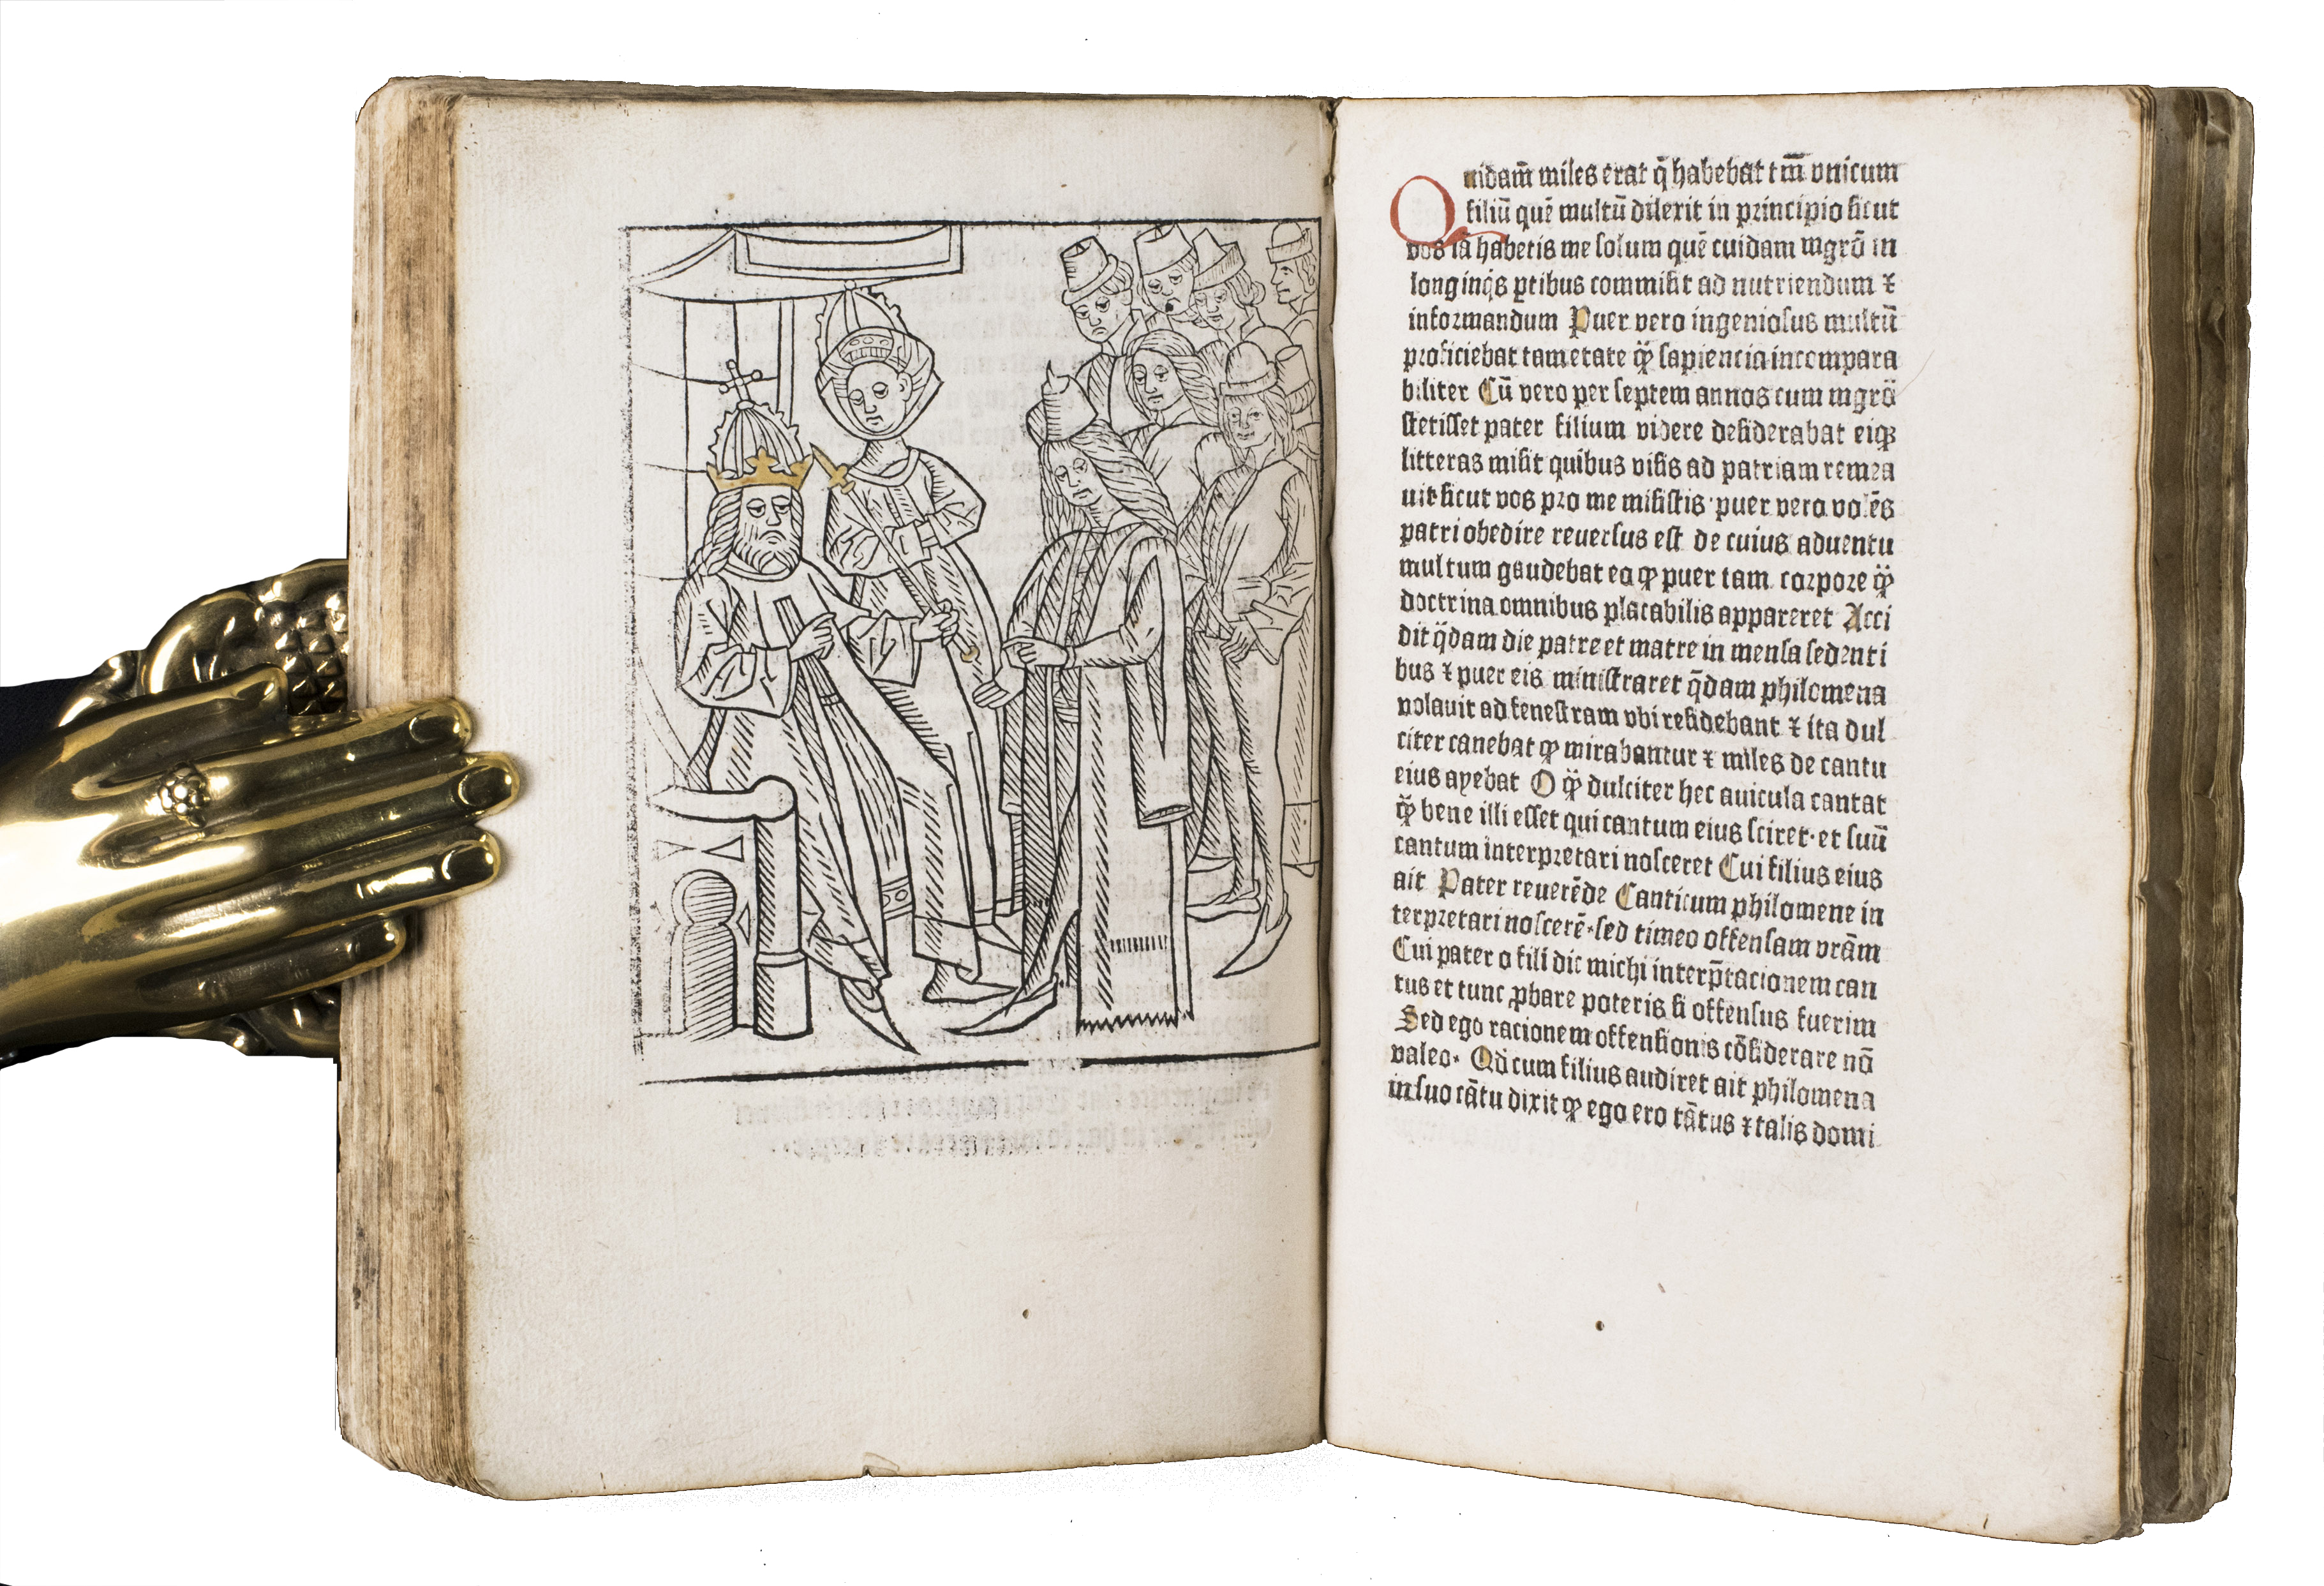 Quidam̄ miles erat q̄ habebat tm̄ vnicum
filiū quē multū dilexit in principio sicut
vos iā habetis me solum quē cuidam mgrō in
longinq̄s ꝑtibus commisit ad nutriendum ⁊
informandum Puer vero ingeniosus multū
proficiebat tam etate qꝫ̄ sapiencia incompara
biliter Cū vero per septem annos cum mgrō
stetisset pater filium videre desiderabat eiqꝫ
litteras misit quibus visis ad patriam remea
uit sicut vos pro me misistis · puer vero volēs
patri obedire reuersus est de cuius aduentu
multum gaudebat eo ꝙ puer tam corpore qꝫ̄
doctrina omnibus placabilis appareret Acci
dit q̄dam die patre et matre in mensa sedenti
bus ⁊ puer eis ministraret q̄dam philomena
volauit ad fenestram vbi residebant ⁊ ita dul
citer canebat ꝙ mirabantur ⁊ miles de cantu
eius ayebat O qꝫ̄ dulciter hec auicula cantat
qꝫ̄ bene illi esset qui cantum eius sciret · et suū
cantum interpretari nosceret Cui filius eius
ait Pater reuerēde Canticum philomene in
terpretari noscerē · sed timeo offensam vrām
Cui pater o fili dic michi interp̄tacionem can
tus et tunc ꝓbare poteris si offensus fuerim
Sed ego racionem offensionis cōsiderare nō
valeo · Qd̄ cum filius audiret ait philomena
in suo cātu dixit ꝙ ego ero tātus ⁊ talis domi